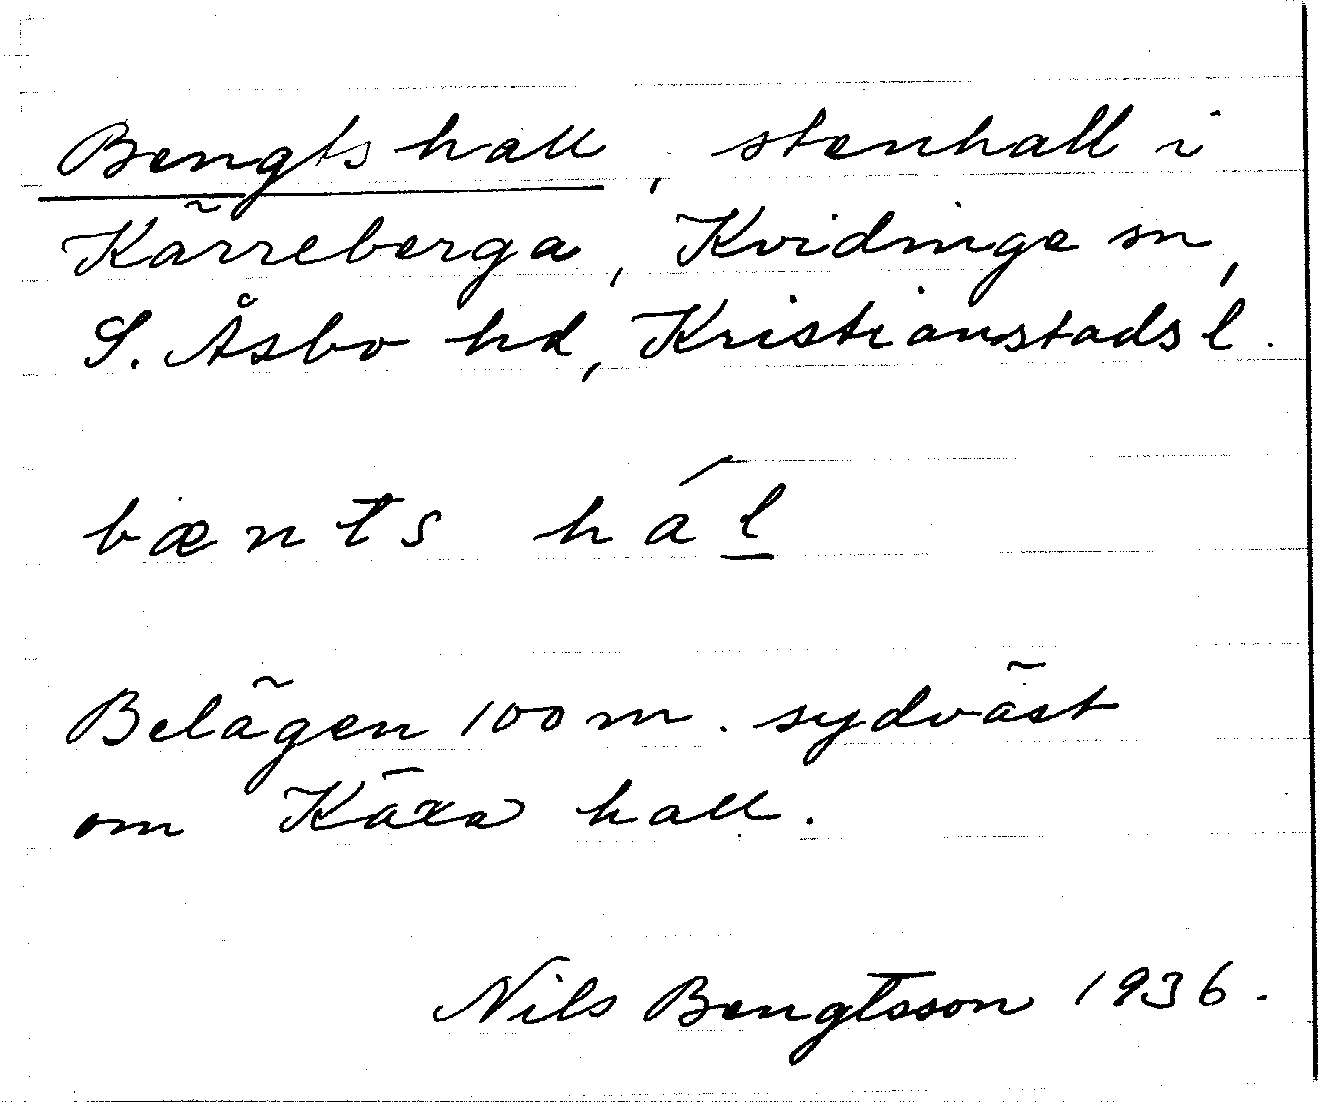 Bengtshall, stenhall i
Kärreberga, Kvidinge sn,
S. Åsbo hd, Kristianstads l.
bænts hál
Belägen 100 m. sydväst
om Käxa hall.
Nils Bengtsson 1936.